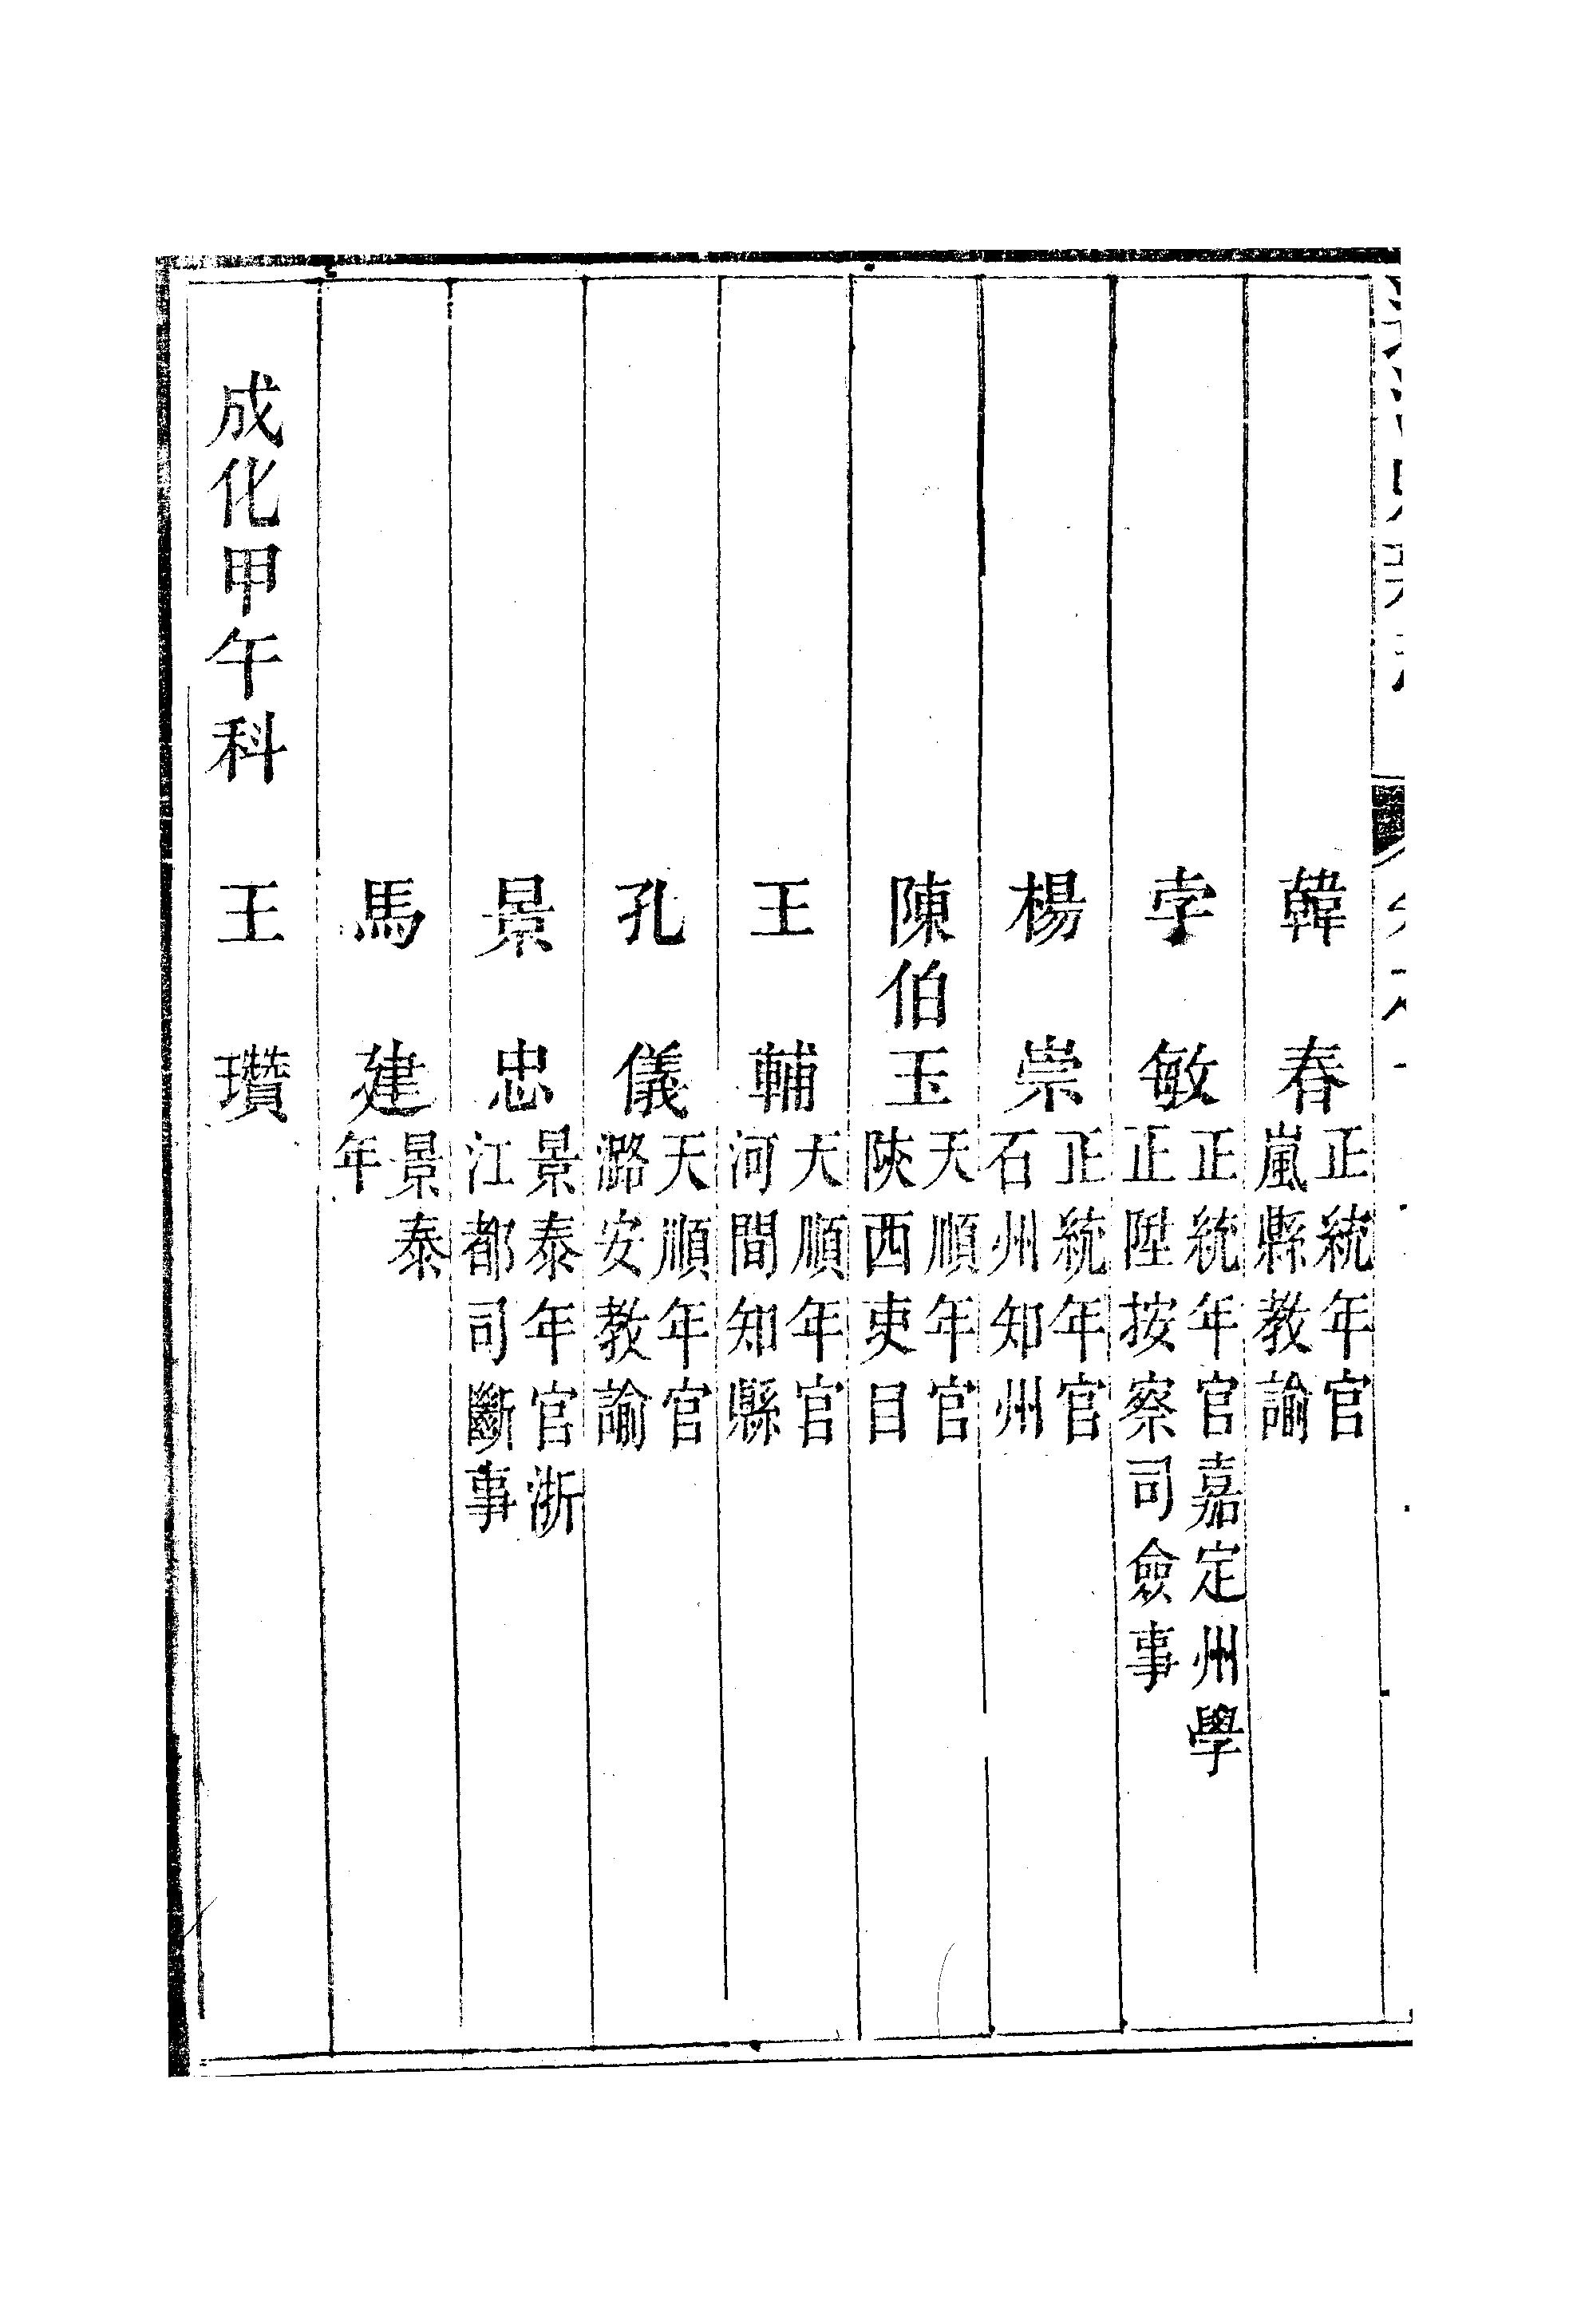 韓　春正統年官嵐縣教諭
李　敏正統年官嘉定州學正陞按察司僉事
楊　崇正統年官石州知州
陳伯玉天順年官陜西吏目
王　輔天順年官河間知縣
孔　儀天順年官潞安教諭
景　忠景泰年官浙江都司斷事
馬　建景泰年
成化甲午科　王　瓚